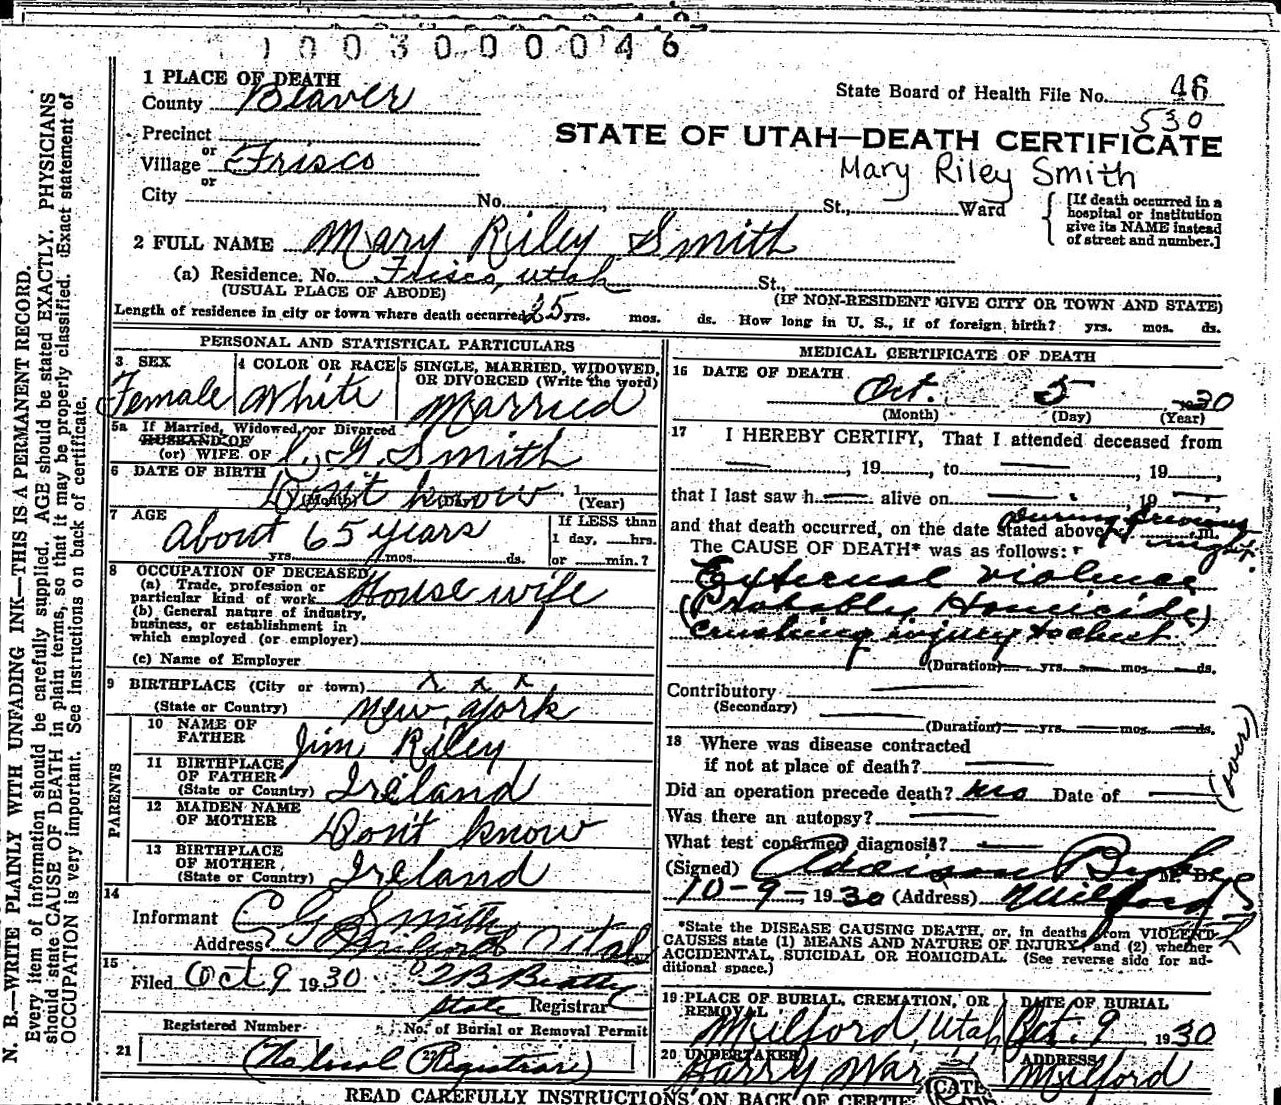 1003000046
1 PLACE OF DEATH
County Beaver
State Board of Health File No. 46
530
Precinct
or
Village Frisco
or
City No. St., Ward
STATE OF UTAH—DEATH CERTIFICATE
Mary Riley Smith
[If death occurred in a
hospital or institution
give its NAME instead
of street and number.]
2 FULL NAME Mary Riley Smith
(a) Residence. No. Frisco, Utah St.,
(USUAL PLACE OF ABODE) (IF NON-RESIDENT GIVE CITY OR TOWN AND STATE)
Length of residence in city or town where death occurred 25 yrs. mos. ds. How long in U. S., if of foreign birth? yrs. mos. ds.
PERSONAL AND STATISTICAL PARTICULARS
3 SEX
Female
4 COLOR OR RACE
White
5 SINGLE, MARRIED, WIDOWED,
OR DIVORCED (Write the word)
Married
5a If Married, Widowed, or Divorced
HUSBAND OF
(or) WIFE OF C. G. Smith
6 DATE OF BIRTH
Don't know
(Month) (Day) 1 (Year)
7 AGE
About 65 years
yrs. mos. ds.
If LESS than
1 day, hrs.
or min.?
8 OCCUPATION OF DECEASED
(a) Trade, profession or
particular kind of work House wife
(b) General nature of industry,
business, or establishment in
which employed (or employer)
(c) Name of Employer
9 BIRTHPLACE (City or town) x x x
(State or Country) New York
PARENTS
10 NAME OF
FATHER Jim Riley
11 BIRTHPLACE
OF FATHER
(State or Country) Ireland
12 MAIDEN NAME
OF MOTHER Don't know
13 BIRTHPLACE
OF MOTHER
(State or Country) Ireland
14
Informant C G Smith
Address Milford Utah
15
Filed Oct 9 1930 Beatty
State Registrar
Registered Number No. of Burial or Removal Permit
21 22
(No local Registrar)
MEDICAL CERTIFICATE OF DEATH
16 DATE OF DEATH
Oct. 5 1930
(Month) (Day) (Year)
17 I HEREBY CERTIFY, That I attended deceased from
— , 19 , to — 19 ,
that I last saw h — alive on — , 19 —
and that death occurred, on the date stated above, at m.
During previous
night.
The CAUSE OF DEATH* was as follows:
External violence
(Probably Homicide)
crushing injury to chest
(Duration) — yrs. — mos. — ds.
Contributory —
(Secondary) —
(Duration) — yrs. — mos. — ds.
18 Where was disease contracted
if not at place of death? —
Did an operation precede death? no Date of —
Was there an autopsy? —
What test confirmed diagnosis? —
(Signed) M. D.
10-9-, 1930 (Address) Milford
(over)
*State the DISEASE CAUSING DEATH, or, in deaths from VIOLENT
CAUSES state (1) MEANS AND NATURE OF INJURY, and (2) whether
ACCIDENTAL, SUICIDAL OR HOMICIDAL. (See reverse side for ad-
ditional space.)
19 PLACE OF BURIAL, CREMATION, OR
REMOVAL
Milford, Utah
DATE OF BURIAL
Oct. 9, 1930
20 UNDERTAKER
Harry
ADDRESS
Milford
READ CAREFULLY INSTRUCTIONS ON BACK OF CERTIF
N. B.—WRITE PLAINLY WITH UNFADING INK—THIS IS A PERMANENT RECORD.
Every item of information should be carefully supplied. AGE should be stated EXACTLY. PHYSICIANS
should state CAUSE OF DEATH in plain terms, so that it may be properly classified. Exact statement of
OCCUPATION is very important. See instructions on back of certificate.